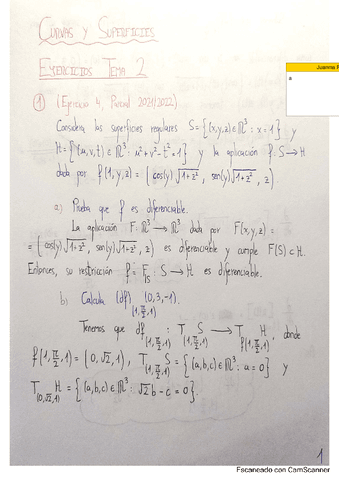 CURVAS Y SUPERFICIES
EJERCICIOS TEMA 2
① (Ejercicio 4, Parcial 2021/2022)
Considera las superficies regulares S = {(x,y,z) ∈ ℝ³ : x = 1} y
H = {(u,v,t) ∈ ℝ³ : u² + v² - t² = 1} y la aplicación f: S → H
dada por f(1,y,z) = (cos(y)√1+z², sen(y)√1+z², z)
a) Prueba que f es diferenciable.
La aplicación F: ℝ³ → ℝ³ dada por F(x,y,z) =
= (cos(y)√1+z², sen(y)√1+z², z) es diferenciable y cumple F(S) ⊂ H.
Entonces, su restricción f = F|S : S → H es diferenciable.
b) Calcula (df)(1,π/2,1) (0,3,-1).
Tenemos que df(1,π/2,1) : T(1,π/2,1) S → Tf(1,π/2,1) H, donde
f(1,π/2,1) = (0,√2,1), T(1,π/2,1) S = {(a,b,c) ∈ ℝ³ : a = 0} y
T(0,√2,1) H = {(a,b,c) ∈ ℝ³ : √2b - c = 0}.
1
Escaneado con CamScanner
Juanma
a